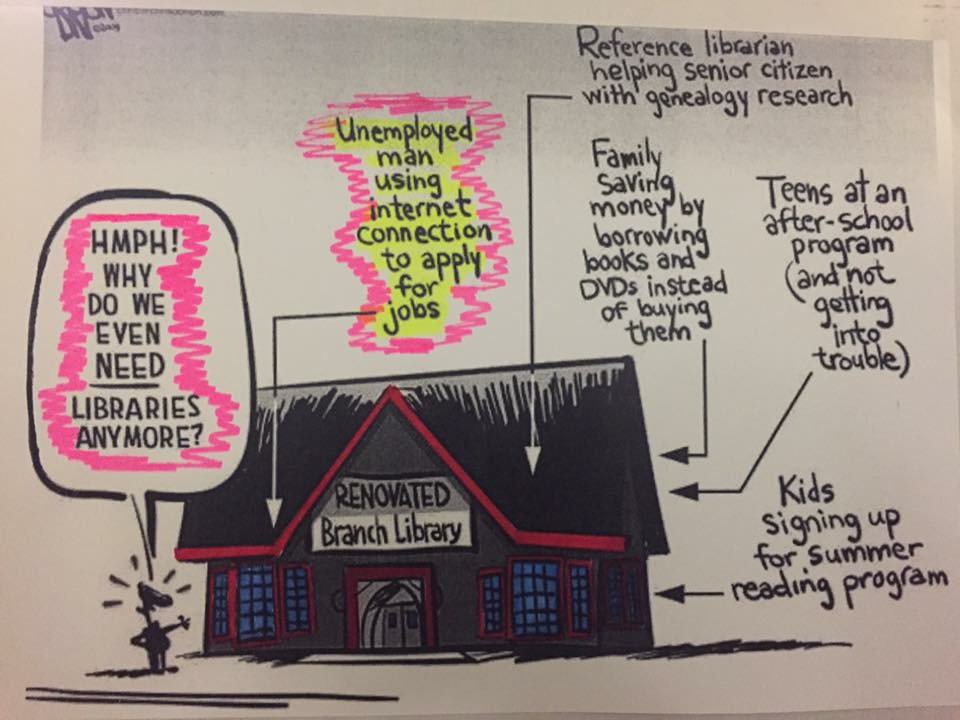 ©2009
Reference librarian
helping senior citizen
with genealogy research
Unemployed
man
using
internet
connection
to apply
for
jobs
Family
Saving
money by
borrowing
books and
DVDs instead
of buying
them
Teens at an
after-school
program
(and not
getting
into
trouble)
HMPH!
WHY
DO WE
EVEN
NEED
LIBRARIES
ANYMORE?
RENOVATED
Branch Library
Kids
signing up
for summer
reading program